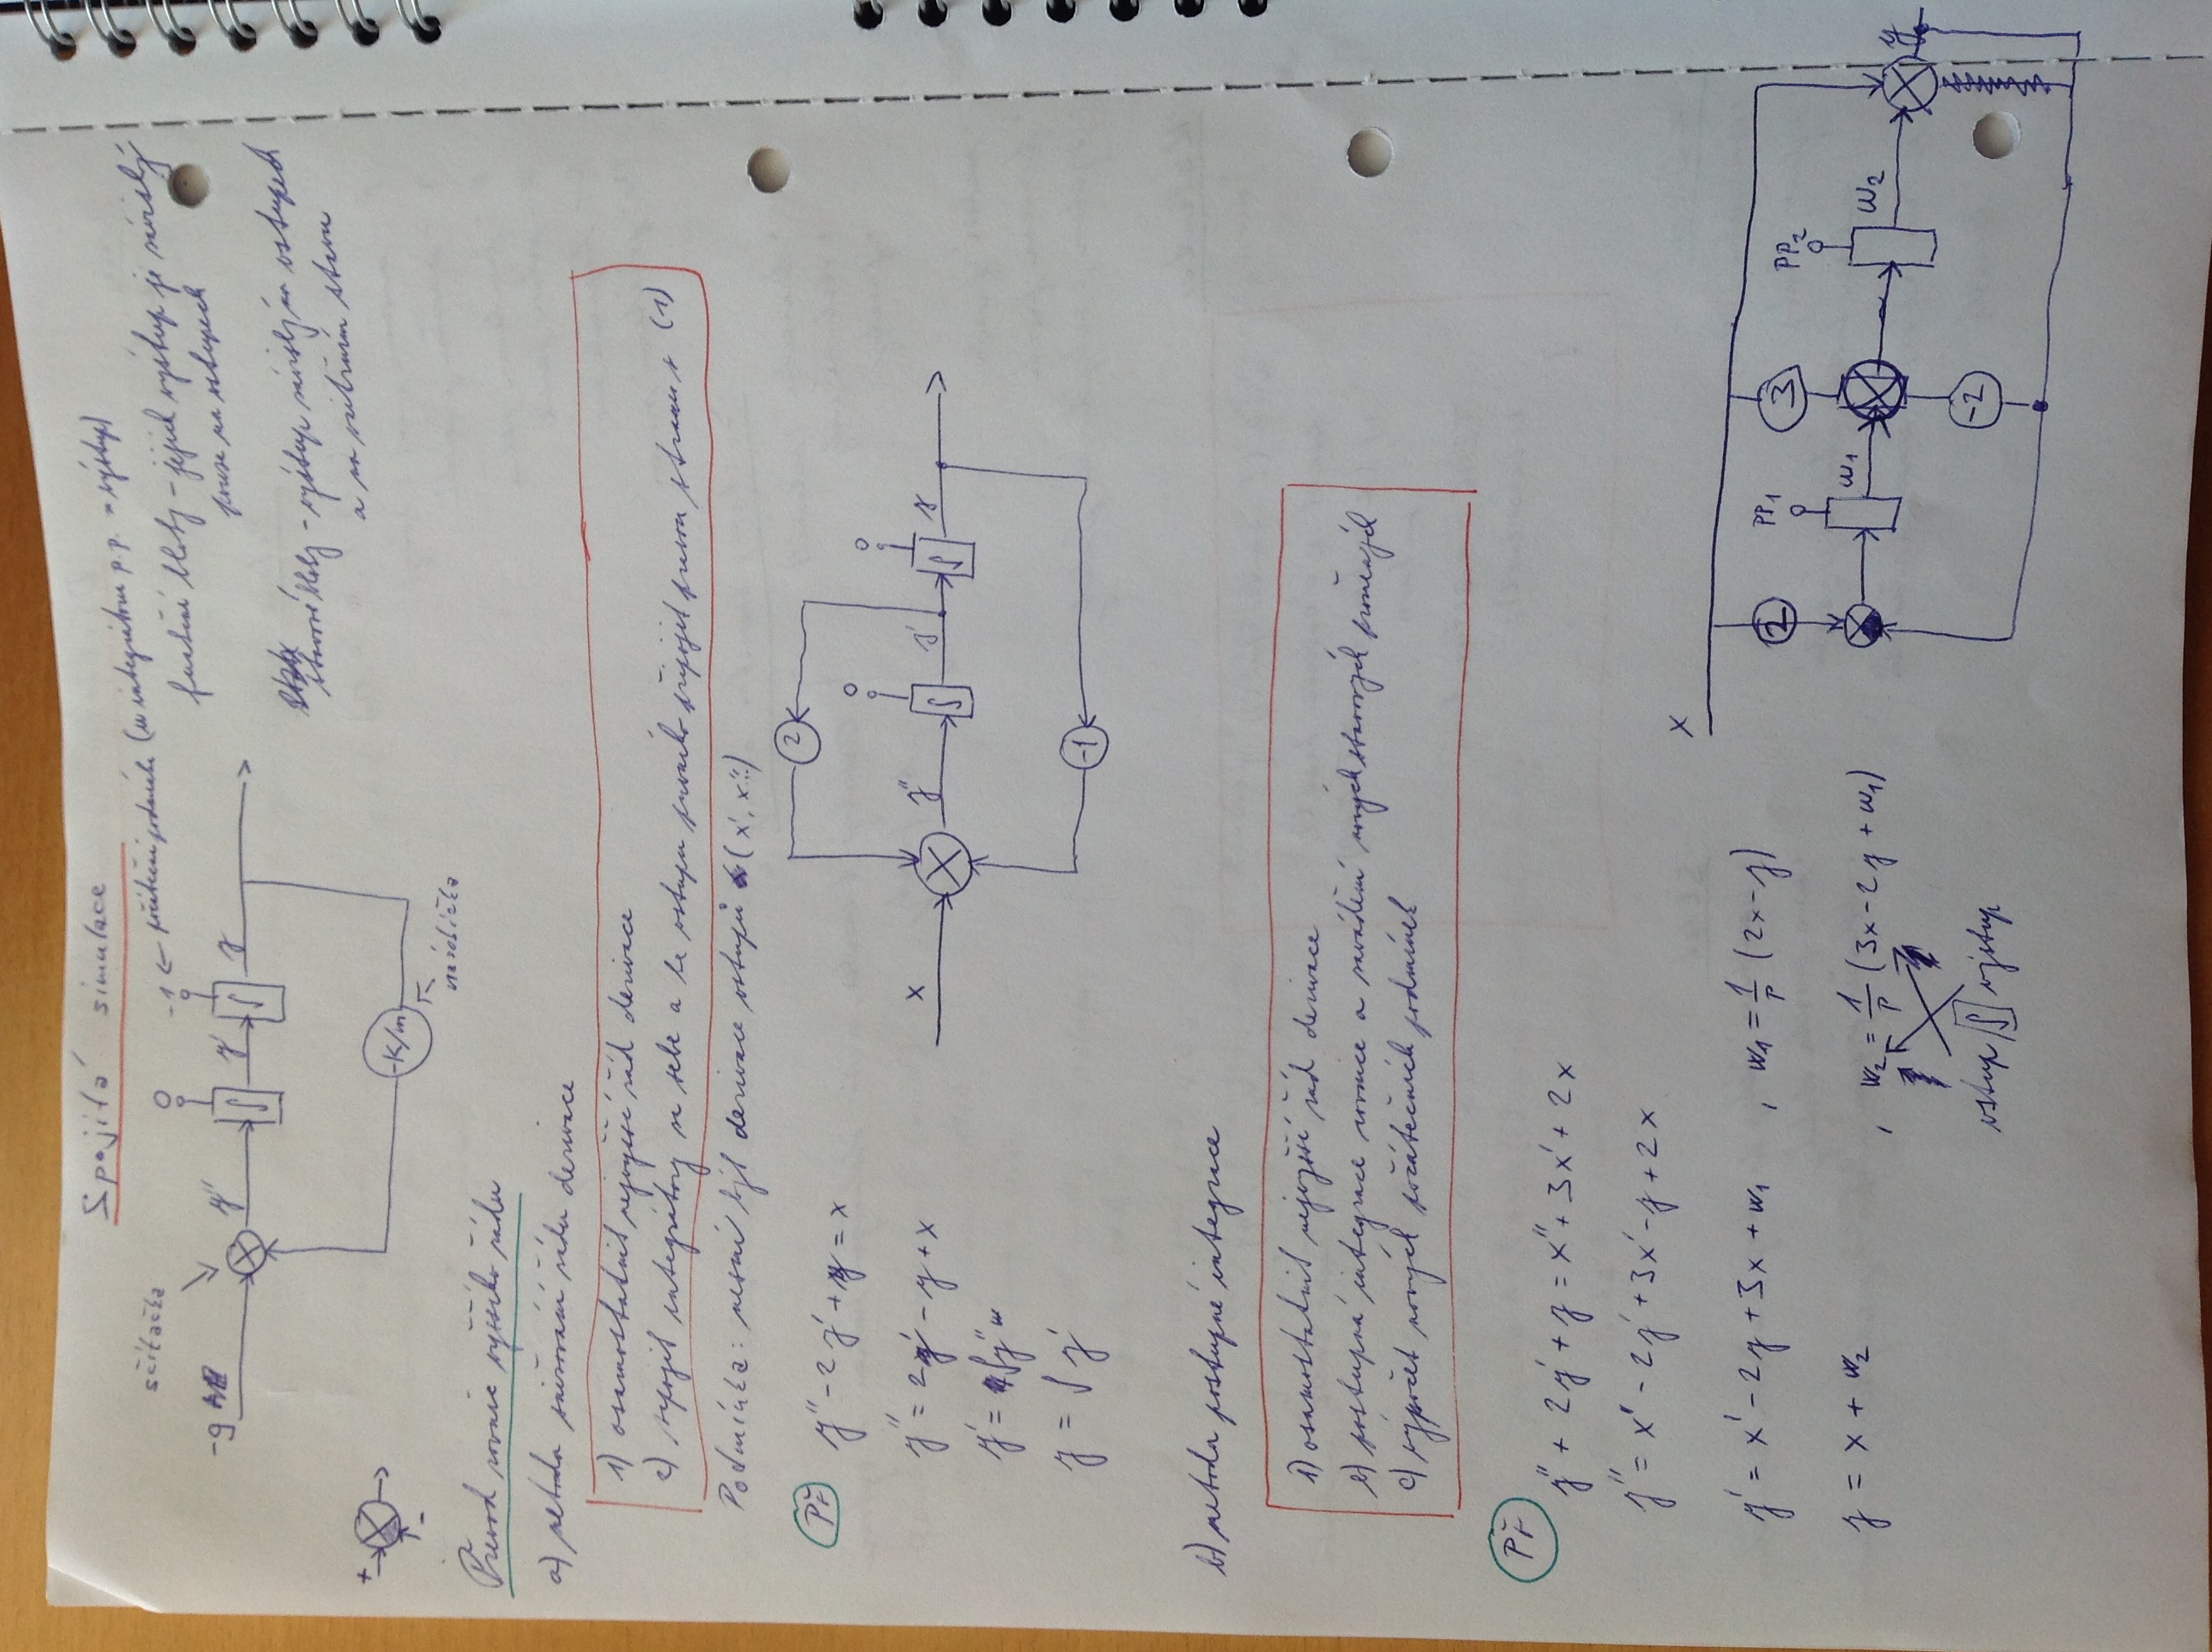 Spojitá simulace
sčítačka
0
-1 ← počáteční podmínka (u integrátoru p.p. = výstup)
-g
y''
∫
y'
∫
y
-K/m
násobička
+
-
funkční bloky – jejich výstup je závislý
pouze na vstupech
stavové bloky – výstup závislý na vstupech
a na vnitřním stavu
Převod rovnic vyššího řádu
a) metoda snižování řádu derivace
1) osamostatnit nejvyšší řád derivace
2) zapojit integrátory za sebe a ke vstupu prvního připojit pravou stranu z (1)
Podmínka: nesmí být derivace vstupů (x', x''...)
Př
y'' - 2y' + y = x
y'' = 2y' - y + x
y' = ∫y''
y = ∫y'
2
0
0
x
y''
∫
y'
∫
y
-1
b) metoda postupné integrace
1) osamostatnit nejvyšší řád derivace
2) postupná integrace rovnice a zavádění nových stavových proměných
c) výpočet nových počátečních podmínek
Př
y'' + 2y' + y = x'' + 3x' + 2x
y'' = x'' - 2y' + 3x' - y + 2x
y' = x' - 2y + 3x + w₁ , w₁ = 1/p (2x - y)
y = x + w₂ , w₂ = 1/p (3x - 2y + w₁)
vstup ∫ výstup
x
2
PP₁
3
PP₂
w₁
w₂
y
-2